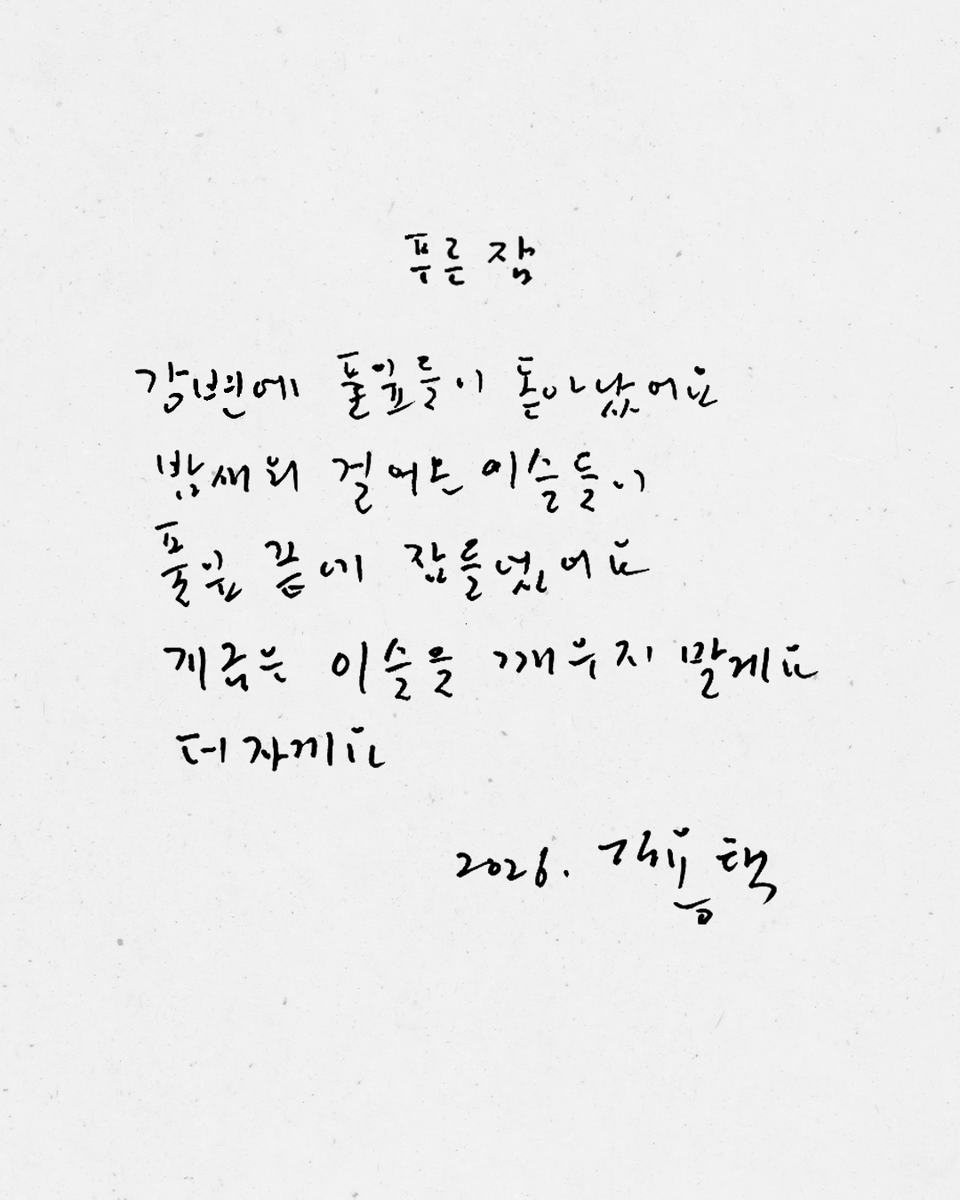 푸른 잠
강변에 풀잎들이 돋아났어요
밤새워 걸어온 이슬들이
풀잎 끝에 잠들었어요
계곡은 이슬을 깨우지 말게요
더 자게요
2026. 김용택